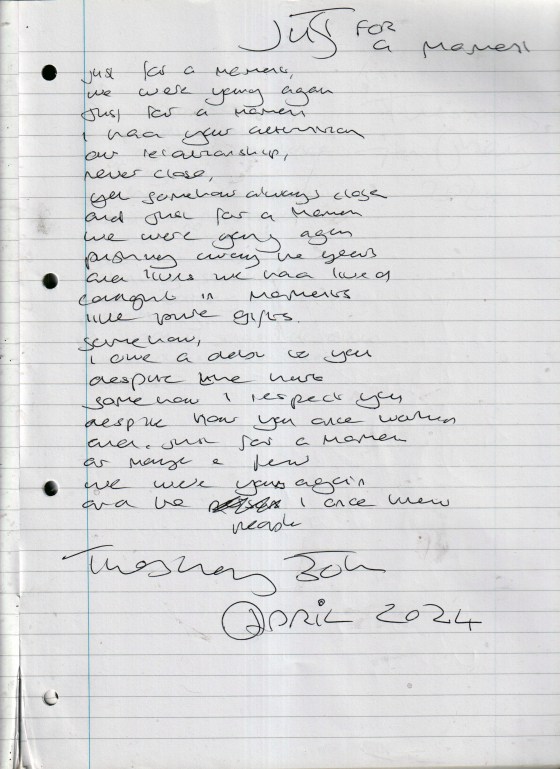 Just FOR
a moment
just for a moment,
we were young again
Just for a moment
i had your attention
our relationship,
never close,
yet somehow always close
and just for a moment
we were young again
pushing away the years
and lives we had lived
caught in moments
like pure gifts.
somehow,
i owe a debt to you
despite the hurt
somehow i respect you
despite how you once walked
and. just for a moment
or maybe a few
we were young again
and the i once knew
people
April 2024